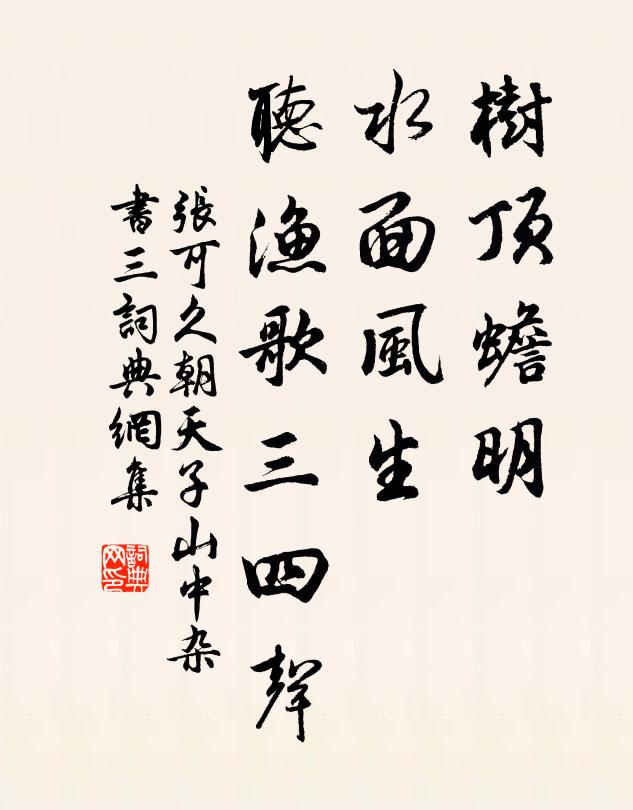 樹頂蟾明
水面風生
聽漁歌三四聲
張可久朝天子山中杂
書三詞典網集
詞典网印